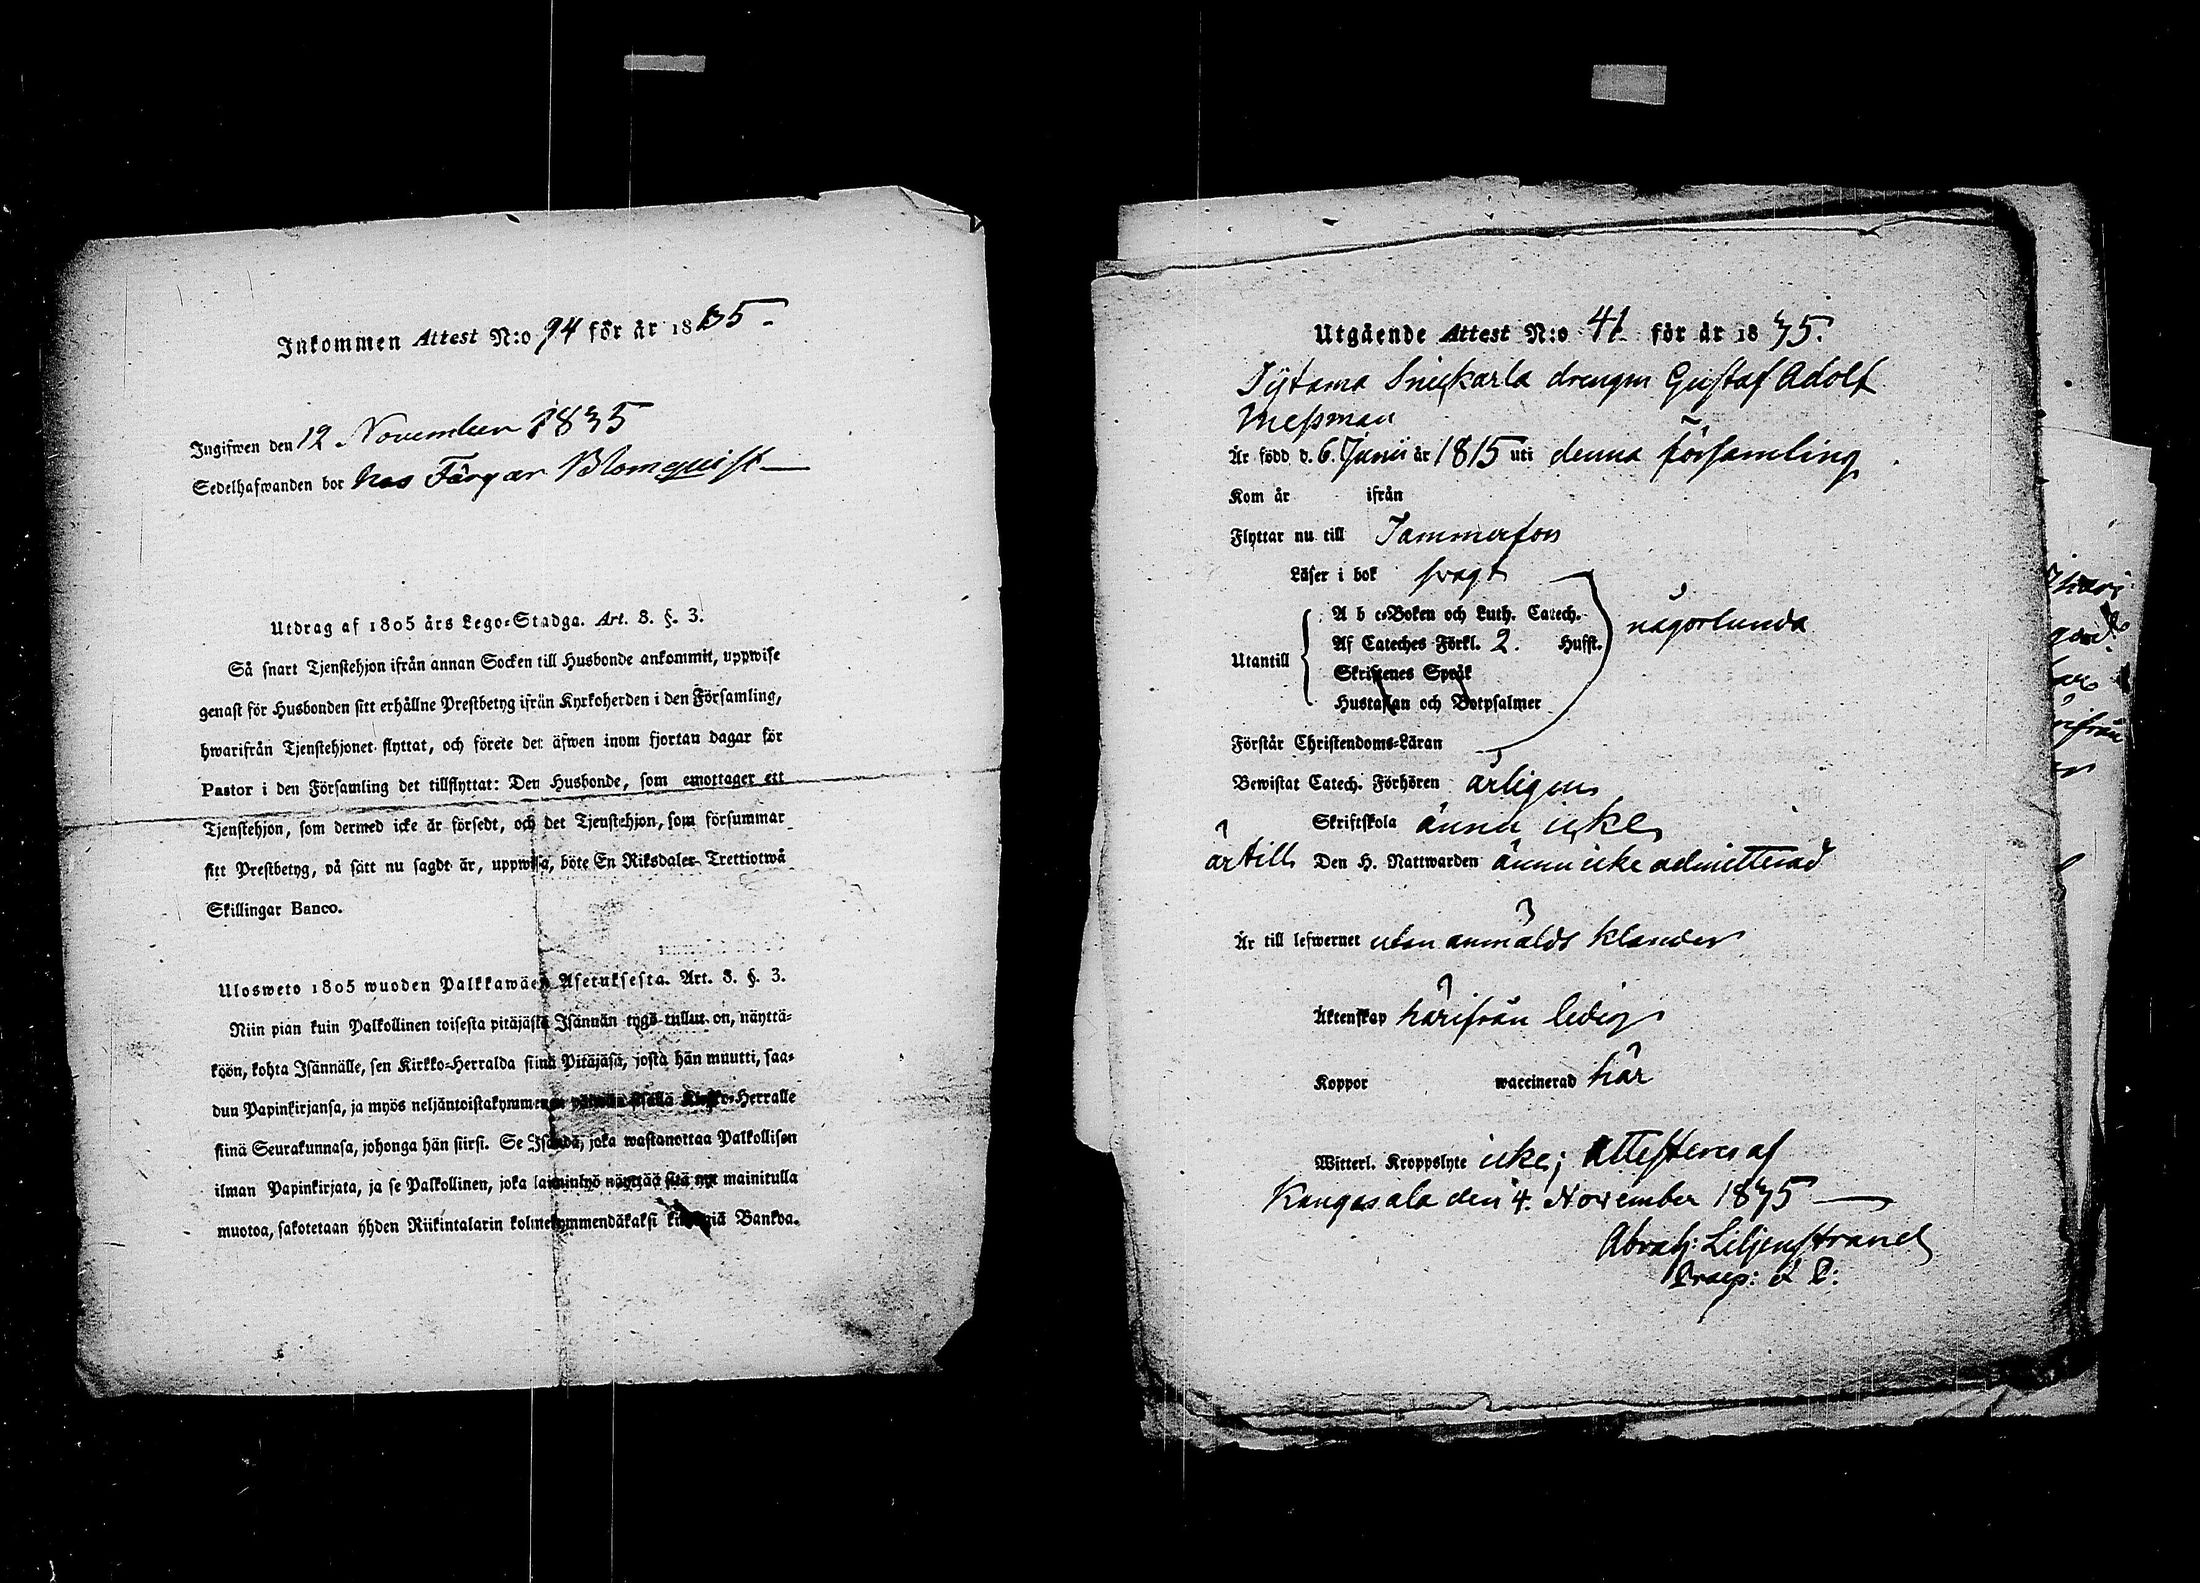 Inkommen Attest N:o 94 för år 1835.
Ingifwen den 12 November 1835
Sedelhafwanden bor hos Färgar Blomquist
Utdrag af 1805 års Lego-Stadga. Art. 8. §. 3.
Så snart Tjenstehjon ifrån annan Socken till Husbonde ankommit, uppwise
genast för Husbonden sitt erhållne Prestbetyg ifrån Kyrkoherden i den Församling,
hwarifrån Tjenstehjonet flyttat, och förete det äfwen inom fjortan dagar för
Pastor i den Församling det tillflyttat: Den Husbonde, som emottager ett
Tjenstehjon, som dermed icke är försedt, och det Tjenstehjon, som försummar
sitt Prestbetyg, på sätt nu sagdt är, uppwisa, böte En Riksdaler Trettiotwå
Skillingar Banco.
Ulosweto 1805 wuoden Palkkawäen Asetuksesta. Art. 8. §. 3.
Niin pian kuin Palkollinen toisesta pitäjästä Isännän tygö tullut on, näyttä-
köön, kohta Isännälle, sen Kirkko-Herralda siinä Pitäjäsä, josta hän muutti, saa-
dun Papinkirjansa, ja myös neljäntoistakymmenen päiwän sisällä Kirkko-Herralle
siinä Seurakunnasa, johonga hän siirsi. Se Isändä, joka wastanottaa Palkollisen
ilman Papinkirjata, ja se Palkollinen, joka laiminlyö näyttää sitä nyt mainitulla
muotoa, sakotetaan yhden Riikintalarin kolmekymmendäkaksi killingiä Bankoa.
Utgående Attest N:o 41 för år 1835.
Tÿtama Snickarla drengen Gustaf Adolf
Messman
Är född d. 6. Junii år 1815 uti denna församling
Kom år ifrån
Flyttar nu till Tammerfors
Läser i bok svagt
Utantill
A b c-Boken och Luth. Catech.
Af Cateches Förkl. 2. Hufst.
Skriftenes Språk
Hustaflan och Botpsalmer
någorlunda
Förstår Christendoms-Läran
Bewistat Catech. Förhören årligen
Skriftskola ännu icke
är till Den H. Nattwarden ännu icke admitterad
Är till lefwernet utan anmäldt klander
Äktenskap härifrån ledig
Koppor waccinerad här
Witterl. Kroppslyte icke; attesteres af
Kangasala den 4. November 1835
Abrah: Liljenstrand
Praep: & P: